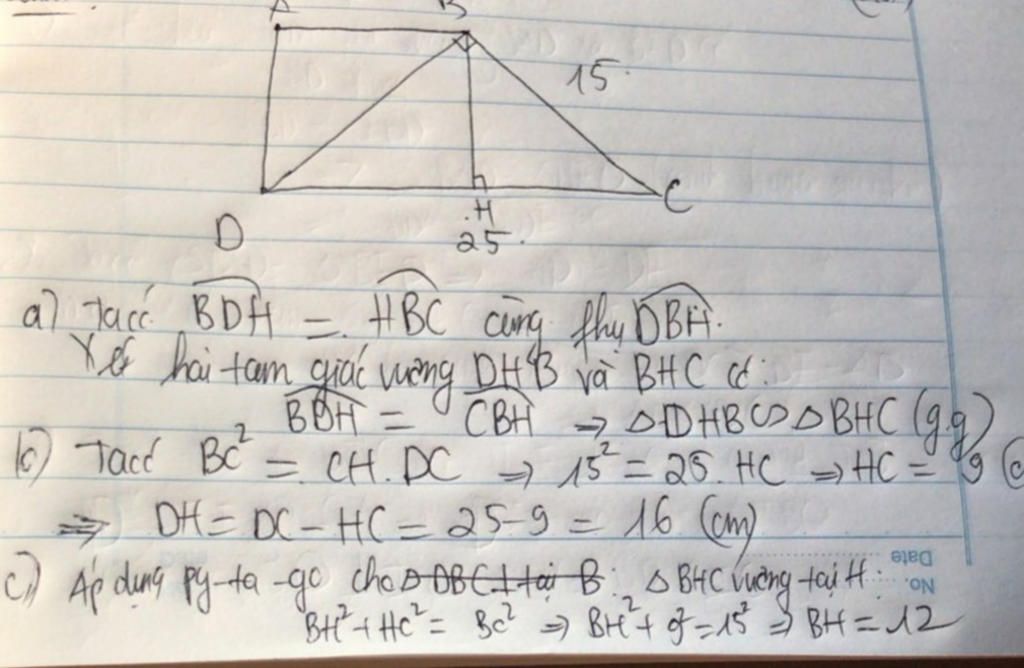 A B
15
C
D
H
25
a) Ta có BDH = HBC cùng phụ DBH.
Xét hai tam giác vuông DHB và BHC có:
BDH = CBH ⇒ △DHB ∽ △BHC (g.g)
b) Ta có BC² = CH.DC ⇒ 15² = 25.HC ⇒ HC = 9 (c
⇒ DH = DC - HC = 25-9 = 16 (cm)
c) Áp dụng py-ta-go cho △DBC ⊥ tại B: △BHC vuông tại H:
BH² + HC² = BC² ⇒ BH² + 9² = 15² ⇒ BH = 12
Date
No.